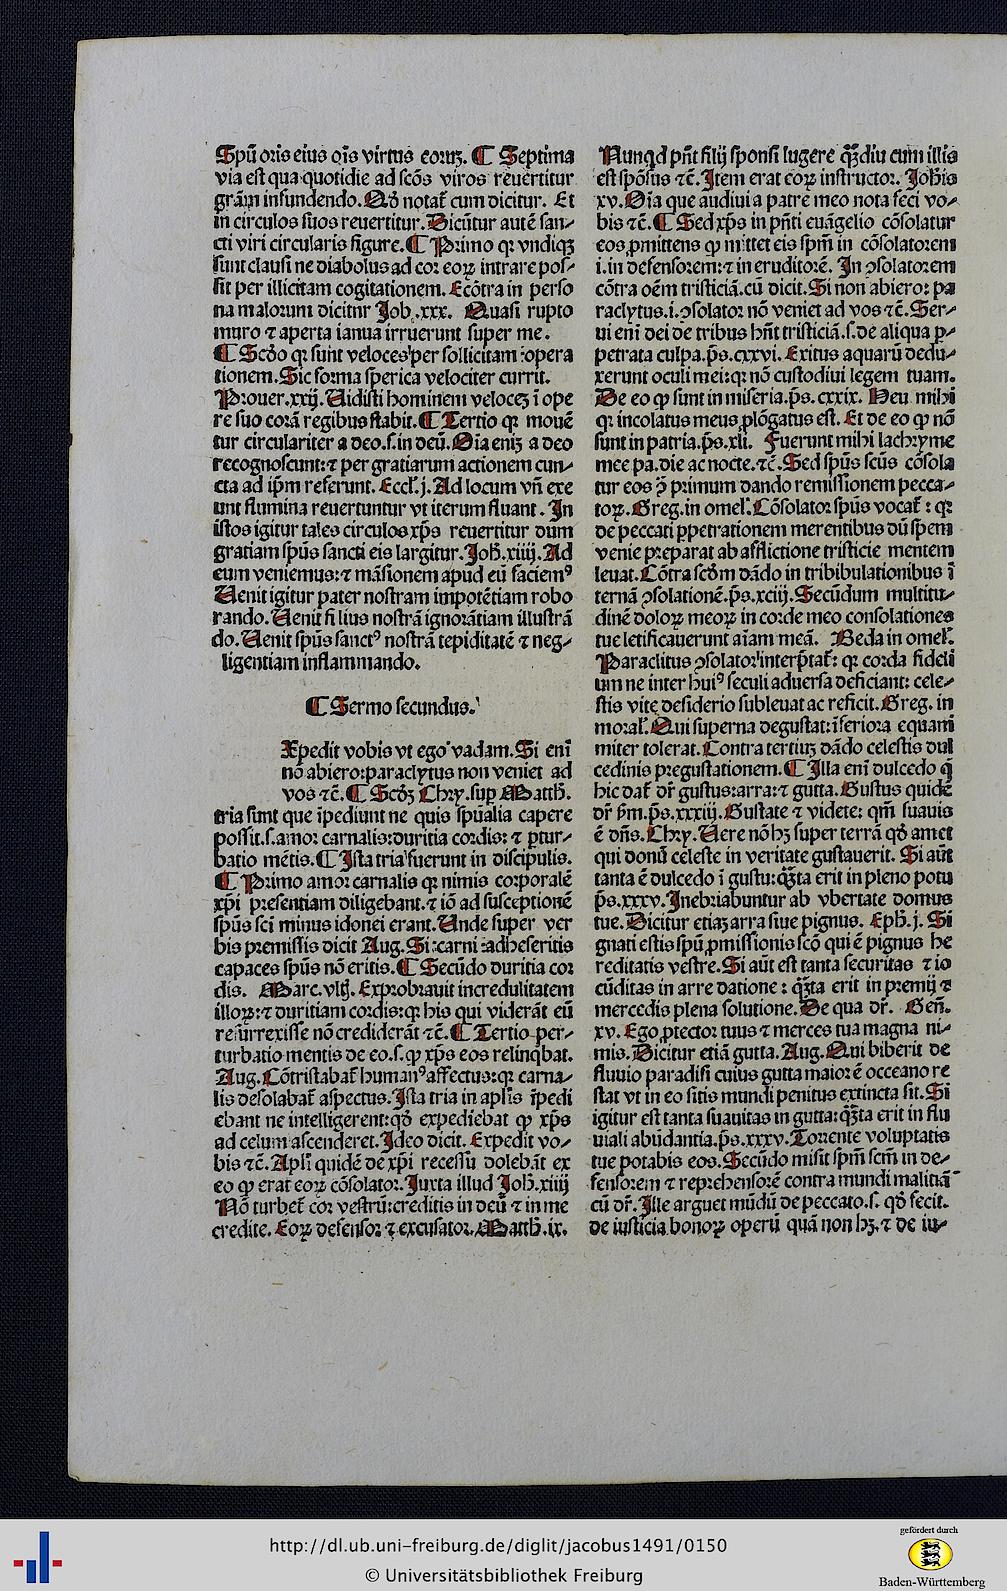 Spū oris eius oīs virtus eorūꝫ. ¶ Septima
via est qua quotidie ad scōs viros reuertitur
gr̄am infundendo. Qđ notat̄ cum dicitur. Et
in circulos suos reuertitur. Dicūtur autē san-
cti viri circularis figure. ¶ Primo qꝛ vndiqꝫ
sunt clausi ne diabolus ad cor eoꝝ intrare pos-
sit per illicitam cogitationem. Ecōtra in perso
na malorum dicitur Job .xxx. Quasi rupto
muro ⁊ aperta ianua irruerunt super me.
¶ Scđo qꝛ sunt veloces per sollicitam opera
tionem. Sic forma sperica velociter currit.
Prouer. xxij. Uidisti hominem velocē ī ope
re suo corā regibus stabit. ¶ Tertio qꝛ mouē
tur circulariter a deo .s. in deū. Oīa eniꝫ a deo
recognoscunt: ⁊ per gratiarum actionem cun-
cta ad ip̄m referunt. Eccl̄. j. Ad locum vn̄ exe
unt flumina reuertuntur vt iterum fluant. In
istos igitur tales circulos xp̄s reuertitur dum
gratiam spūs sancti eis largitur. Joh̄. xiiij. Ad
eum veniemus: ⁊ māsionem apud eū faciemꝰ
Uenit igitur pater nostram impotētiam robo
rando. Uenit filius nostrā ignorātiam illustrā
do. Uenit spūs sanctꝰ nostrā tepiditatē ⁊ neg-
ligentiam inflammando.
¶ Sermo secundus.
Xpedit vobis vt ego vadam. Si enī
nō abiero: paraclytus non veniet ad
vos ⁊c̄. ¶ Scđꝫ Chry. sup̄ Matth̄.
tria sunt que īpediunt ne quis spūalia capere
possit .s. amor carnalis: duritia cordis: ⁊ ꝑtur-
batio mētis. ¶ Ista tria fuerunt in discipulis.
¶ Primo amor carnalis qꝛ nimis corporalē
xp̄i presentiam diligebant. ⁊ iō ad susceptionē
spūs sc̄i minus idonei erant. Unde super ver
bis premissis dicit Aug. Si carni adheseritis
capaces spūs nō eritis. ¶ Secūdo duritia cor
dis. Marc. vltj. Exprobrauit incredulitatem
illoꝝ: ⁊ duritiam cordis: qꝛ his qui viderāt eū
resurrexisse nō crediderāt ⁊c̄. ¶ Tertio per-
turbatio mentis de eo .s. ꝙ xp̄s eos relinq̄bat.
Aug. Cōtristabat̄ humanꝰ affectus: qꝛ carna-
lis desolabat̄ aspectus. Ista tria in apl̄is īpedi
ebant ne intelligerent: qđ expediebat ꝙ xp̄s
ad celum ascenderet. Ideo dicit. Expedit vo-
bis ⁊c̄. Apl̄i quidē de xp̄i recessu dolebāt ex
eo ꝙ erat eoꝝ cōsolator. Juxta illud Joh̄. xiiij
Nō turbet̄ cor vestrū: creditis in deū ⁊ in me
credite. Eoꝝ defensor ⁊ excusator. Matth̄. ix.
Nunqd pn̄t filij sponsi lugere qꝫdiu cum illis
est spōsus ⁊c̄. Item erat eoꝝ instructor. Joh̄is
xv. Oīa que audiui a patre meo nota feci vo-
bis ⁊c̄. ¶ Sed xp̄s in pn̄ti euāgelio cōsolatur
eos ꝓmittens ꝙ mittet eis spm̄ in cōsolatorem
i. in defensorem: ⁊ in eruditorē. In ꝯsolatorem
cōtra oēm tristiciā. cū dicit. Si non abiero: pa
raclytus .i. ꝯsolator nō veniet ad vos ⁊c̄. Ser-
ui enī dei de tribus hn̄t tristiciā .s. de aliqua ꝑ-
petrata culpa. p̄s. cxxvi. Exitus aquarū dedu-
xerunt oculi mei: qꝛ nō custodiui legem tuam.
De eo ꝙ sunt in miseria. p̄s. cxxix. Heu mihi
qꝛ incolatus meus ꝓlōgatus est. Et de eo ꝙ nō
sunt in patria. p̄s. xli. Fuerunt mihi lachryme
mee pa. die ac nocte. ⁊c̄. Sed spūs scūs cōsola
tur eos ꝯ̄ primum dando remissionem pecca-
toꝝ. Greg. in omel̄. Cōsolator spūs vocat̄: qꝛ
de peccati ꝑpetrationem merentibus dū spem
venie preparat ab afflictione tristicie mentem
leuat. Cōtra scđm dādo in tribibulationibus ī
ternā ꝯsolationē. p̄s. xciij. Secūdum multitu-
dinē doloꝝ meoꝝ in corde meo consolationes
tue letificauerunt aīam meā. Beda in omel̄.
Paraclitus ꝯsolator interp̄tat̄: qꝛ corda fideli
um ne inter huiꝰ seculi aduersa deficiant: cele-
stis vite desiderio subleuat ac reficit. Greg. in
moral̄. Qui superna degustat: īferiora equani
miter tolerat. Contra tertiuꝫ dādo celestis dul
cedinis pregustationem. ¶ Illa enī dulcedo q̄
hic dat̄ dr̄ gustus: arra: ⁊ gutta. Gustus quidē
dr̄ ẜm. p̄s. xxxiij. Gustate ⁊ videte: qm̄ suauis
ē dn̄s. Chry. Uere nō hꝫ super terrā qđ amet
qui donū celeste in veritate gustauerit. Si aūt
tanta ē dulcedo ī gustu: qꝫta erit in pleno potu
p̄s. xxxv. Inebriabuntur ab vbertate domus
tue. Dicitur etiaꝫ arra siue pignus. Eph̄. j. Si
gnati estis spū ꝓmissionis scō qui ē pignus he
reditatis vestre. Si aūt est tanta securitas ⁊ io
cūditas in arre datione: qꝫta erit in premij ⁊
mercedis plena solutione. De qua dr̄. Gen̄.
xv. Ego ꝓtector tuus ⁊ merces tua magna ni-
mis. Dicitur etiā gutta. Aug. Qui biberit de
fluuio paradisi cuius gutta maior ē occeano re
stat vt in eo sitis mundi penitus extincta sit. Si
igitur est tanta suauitas in gutta: qꝫta erit in flu
uiali abūdantia. p̄s. xxxv. Torrente voluptatis
tue potabis eos. Secūdo misit spm̄ scm̄ in de-
fensorem ⁊ reprehensorē contra mundi malitiā
cū dr̄. Ille arguet mūdū de peccato .s. qđ fecit.
de iusticia bonoꝝ operū quā non hꝫ. ⁊ de iu-
http://dl.ub.uni-freiburg.de/diglit/jacobus1491/0150
© Universitätsbibliothek Freiburg
gefördert durch
Baden-Württemberg